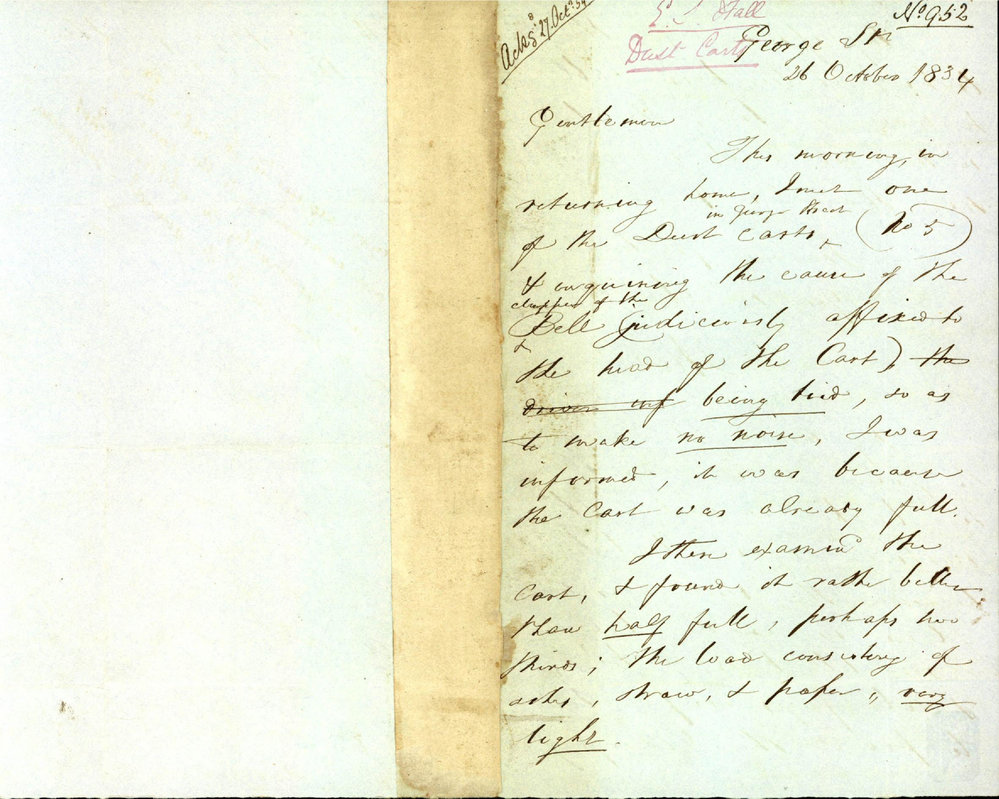 Ackg'd 27 Oct. 54
E S Hall
Dust Carts
No 952
George Str
26 October 1854
Gentlemen
This morning, in
returning home, I met one
in George Street
of the Dust Carts, (No 5)
& enquiring the cause of the
clapper of the
Bell (judiciously affixed to
the head of the Cart), the
driver inf being tied, so as
to make no noise, I was
informed, it was because
the Cart was already full.
I then examin'd the
Cart, & found it rather better
than half full, perhaps two
thirds; the load consisting of
ashes, straw, & paper, very
light.